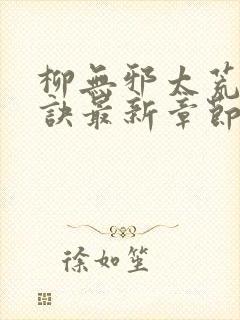 柳無邪太荒
訣最新章節
徐如笙